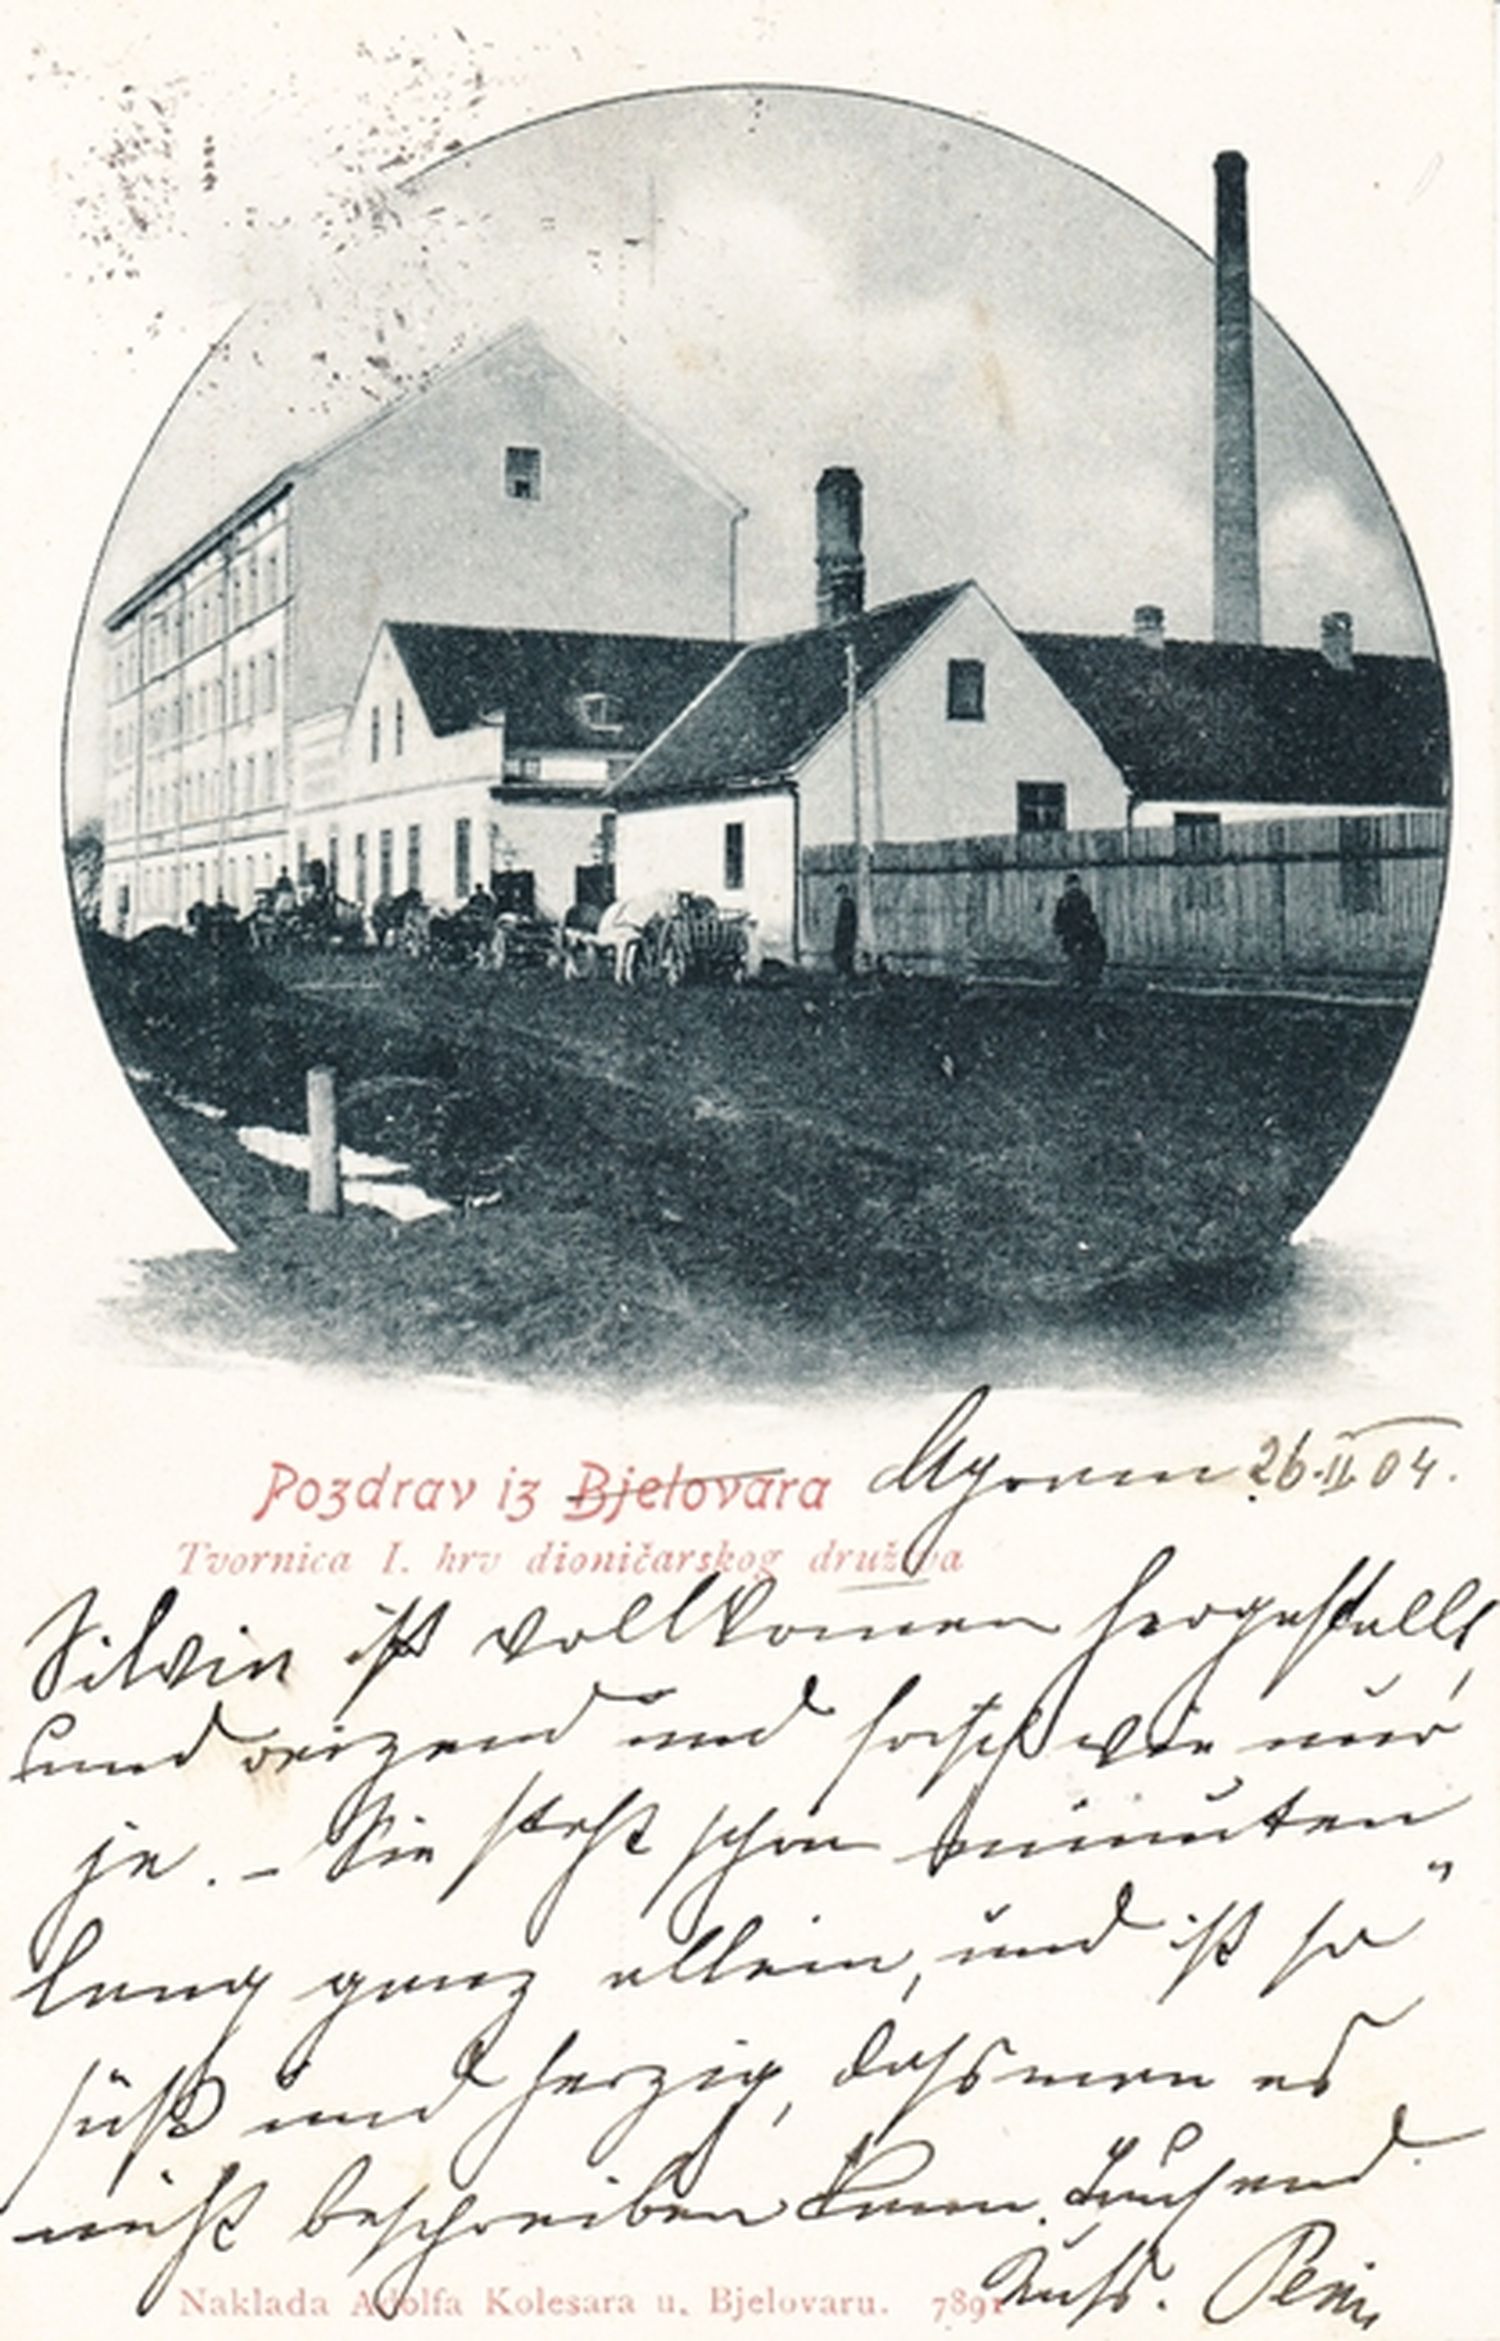 Pozdrav iz Bjelovara
Agram 26.II.04.
Tvornica I. hrv dioničarskog družtva
Silvin ist vollkomen hergestellt,
und reizend und frisch wie nur
je. – Sie steht schon minuten
lang ganz allein, und ist so
süß und herzig, dass man es
nicht beschreiben kann. Tausend
Naklada Adolfa Kolesara u. Bjelovaru. 7891